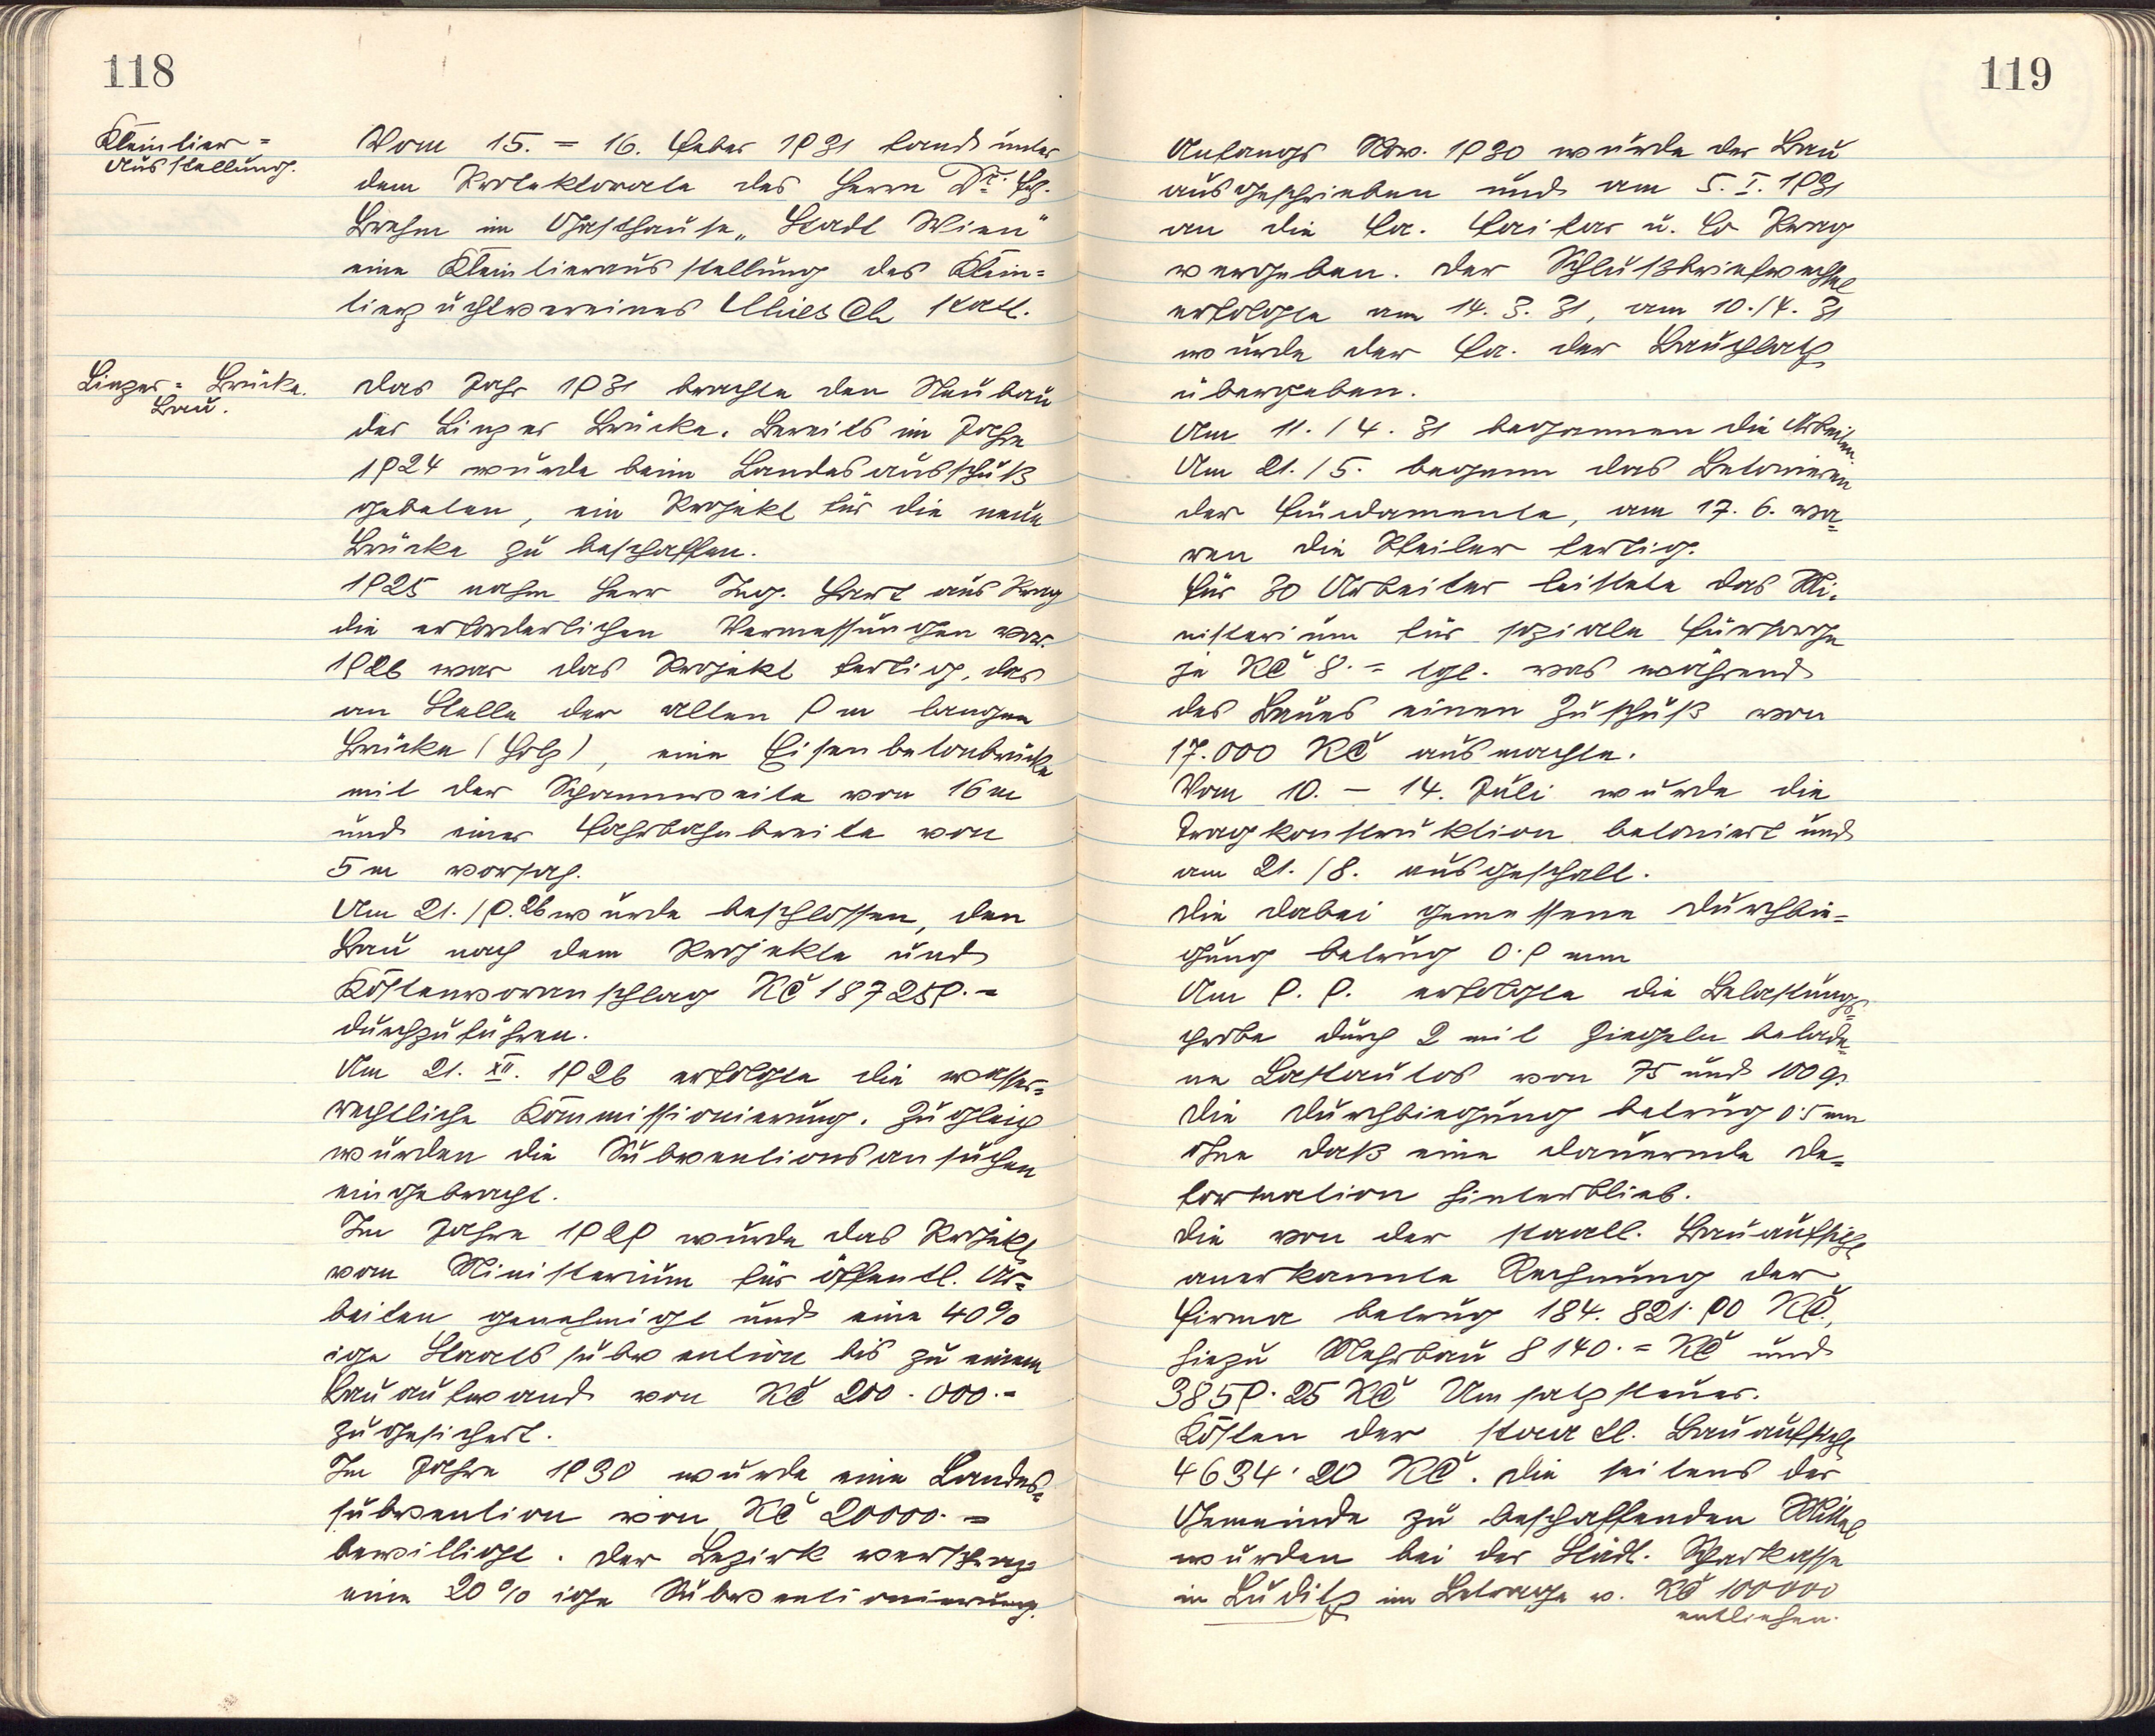 118
Kleintier=
Ausstellung.
Vom 15. = 16. Feber 1931 fand unter
dem Protektorate des Herrn Dr. Hch.
Brehm im Gasthause „Stadt Wien"
eine Kleintierausstellung des Klein=
tierzuchtvereines statt.
Linzer= Brücke.
Bau.
Das Jahr 1931 brachte den Neubau
der Linzer Brücke. Bereits im Jahre
1924 wurde beim Landesausschuß
gebeten, ein Projekt für die neue
Brücke zu beschaffen.
1925 nahm Herr Ing. Hart aus Prag
die erforderlichen Vermessungen vor.
1926 war das Projekt fertig, das
an Stelle der alten 9 m langen
Brücke (Holz), eine Eisenbetonbrücke
mit der Spannweite von 16 m
und einer Fahrbahnbreite von
5 m vorsah.
Am 21./9.26 wurde beschlossen, den
Bau nach dem Projekte und
Kostenvoranschlag Kč 187259.=
durchzuführen.
Am 21. XII. 1926 erfolgte die wasser=
rechtliche Kommissionierung. Zugleich
wurden die Subventionsansuchen
eingebracht.
Im Jahre 1929 wurde das Projekt
vom Ministerium für öffentl. Ar=
beiten genehmigt und eine 40%
ige Staatssubvention bis zu einem
Bauaufwand von Kč 200.000.=
zugesichert.
Im Jahre 1930 wurde eine Landes=
subvention von Kč 20000.=
bewilligt. Der Bezirk versprach
eine 20% ige Subventionierung.
119
Anfangs Nov. 1930 wurde der Bau
ausgeschrieben und am 5. I. 1931
an die Fa. u. Co Prag
vergeben. Der Schlußbriefwechsel
erfolgte am 14. 3. 31, am 10./4. 31
wurde der Fa. der Bauplatz
übergeben.
Am 11./4. 31 begannen die Arbeiten.
Am 21./5. begann das Betonieren
der Fundamente, am 17. 6. wa=
ren die Pfeiler fertig.
Für 30 Arbeiter leistete das Mi=
nisterium für soziale Fürsorge
je Kč 8.= tgl. was während
des Baues einen Zuschuß von
17.000 Kč ausmachte.
Vom 10. – 14. Juli wurde die
Tragkonstruktion betoniert und
am 21./8. ausgeschalt.
Die dabei gemessene Durchbie=
gung betrug 0.9 mm
Am 9. 9. erfolgte die Belastungs=
probe durch 2 mit Ziegeln belade=
ne Lastautos von 75 und 100 q.
Die Durchbiegung betrug 0.5 mm
ohne daß eine dauernde De=
formation hinterblieb.
Die von der staatl. Bauaufsicht
anerkannte Rechnung der
Firma betrug 184.821.90 Kč,
hiezu Mehrbau 8140.= Kč und
3859.25 Kč Umsatzsteuer.
Kosten der staatl. Bauaufsicht
4634.20 Kč. Die seitens der
Gemeinde zu beschaffenden Mittel
wurden bei der Städt. Sparkasse
in Luditz im Betrage v. Kč 100000
entliehen.